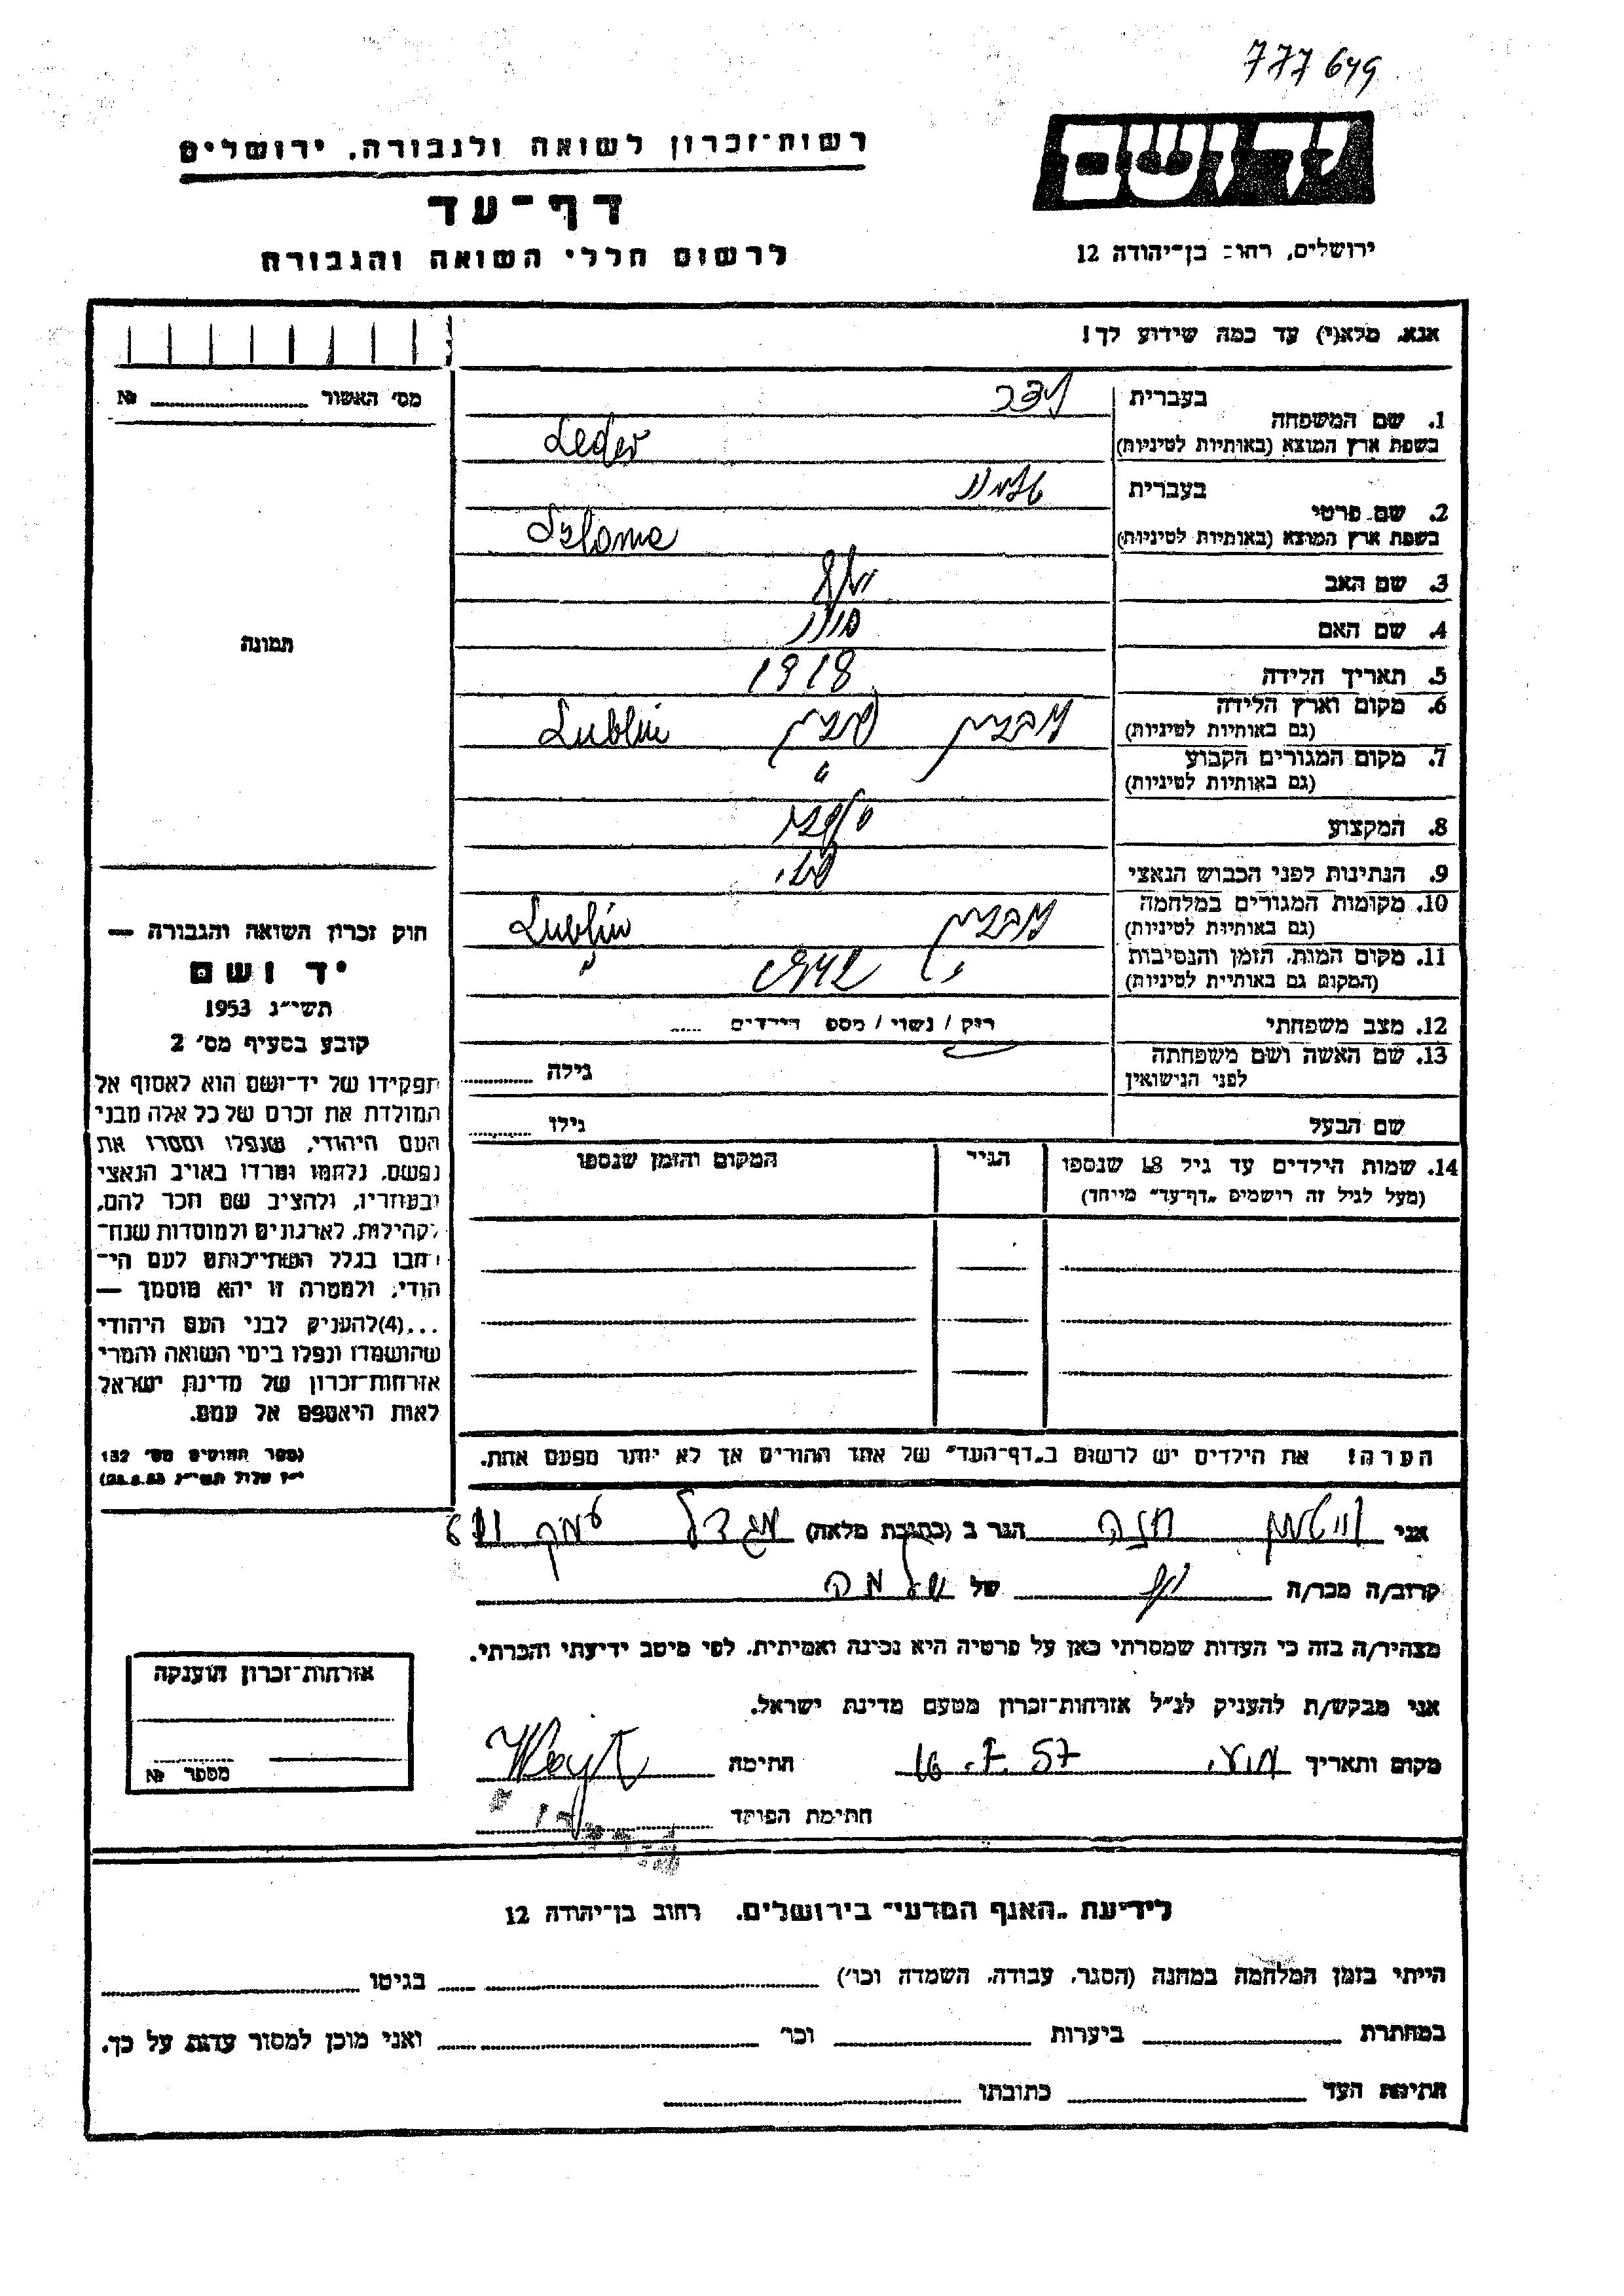 777649
רשות־זכרון לשואה ולגבורה, ירושלים
דף־עד
לרשום חללי השואה והגבורה
יד ושם
ירושלים, רחוב בן־יהודה 12
אנא, מלא(י) עד כמה שידוע לך!
מס' האשור №
תמונה
1. שם המשפחה
בעברית לדר
בשפת ארץ המוצא (באותיות לטיניות) Leder
2. שם פרטי
בעברית
בשפת ארץ המוצא (באותיות לטיניות) Szloma
3. שם האב יוסף
4. שם האם
5. תאריך הלידה 1918
6. מקום וארץ הלידה
(גם באותיות לטיניות) לובלין פולין Lublin
7. מקום המגורים הקבוע
(גם באותיות לטיניות) "
8. המקצוע
9. הנתינות לפני הכבוש הנאצי פול.
10. מקומות המגורים במלחמה
(גם באותיות לטיניות) לובלין Lublin
11. מקום המות, הזמן והנסיבות
(המקום גם באותיית לטיניות)
12. מצב משפחתי רוק / נשוי / מספ הילדים
13. שם האשה ושם משפחתה
לפני הנישואין גילה
שם הבעל גילו
14. שמות הילדים עד גיל 18 שנספו
(מעל לגיל זה רישמים "דף־עד" מייחד)
הגיל
המקום והזמן שנספו
הערה! את הילדים יש לרשום ב"דף־העד" של אחד ההורים אך לא יותר מפעם אחת.
חוק זכרון השואה והגבורה —
יד ושם
תשי"ג 1953
קובע בסעיף מס' 2
תפקידו של יד־ושם הוא לאסוף אל
המולדת את זכרם של כל אלה מבני
העם היהודי, שנפלו ומסרו את
נפשם, נלחמו ומרדו באויב הנאצי
ובעוזריו, ולהציב שם וזכר להם,
לקהילות, לארגונים ולמוסדות שנח־
רבו בגלל השתייכותם לעם הי־
הודי, ולמטרה זו יהא מוסמך —
...(4)להעניק לבני העם היהודי
שהושמדו ונפלו בימי השואה והמרי
אזרחות־זכרון של מדינת ישראל
לאות היאספם אל עמם.
(ספר החוקים מס' 132
י"ז אלול תשי"ג 28.8.53)
אני וייטמן חנה הגר ב (כתובת מלאה) מגדל עמק 611
קרוב/ה מכר/ה של שלמה
מצהיר/ה בזה כי העדות שמסרתי כאן על פרטיה היא נכונה ואמיתית, לפי מיטב ידיעתי והכרתי.
אני מבקש/ת להעניק לנ"ל אזרחות־זכרון מטעם מדינת ישראל.
מקום ותאריך 16.7.57 חתימה
חתימת הפוקד
אזרחות־זכרון הוענקה
מספר №
לידיעת "האגף המדעי" בירושלים, רחוב בן־יהודה 12
הייתי בזמן המלחמה במחנה (הסגר, עבודה, השמדה וכו') בגיטו
במחתרת ביערות וכו' ואני מוכן למסור עדות על כך.
חתימת העד כתובתו